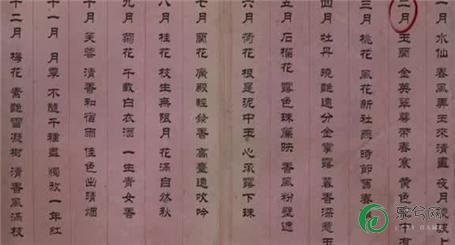 一月 水仙 春風弄玉來清晝 夜月凌波上
二月 玉蘭 金英翠萼帶春寒 黃色花中有
三月 桃花 風花新社燕 時節舊春
四月 牡丹 曉艷遠分金掌露 暮香深惹玉
五月 石榴花 露色珠簾映 香風粉壁遮
六月 荷花 根是泥中玉 心承露下珠
七月 蘭花 廣殿輕發香 高臺遠吹吟
八月 桂花 枝生無限月 花滿自然秋
九月 菊花 千載白衣酒 一生青女香
十月 芙蓉 清香和宿雨 佳色出晴烟
十一月 月季 不隨千種盡 獨放一年紅
十二月 梅花 素艷雪凝樹 清香風滿枝